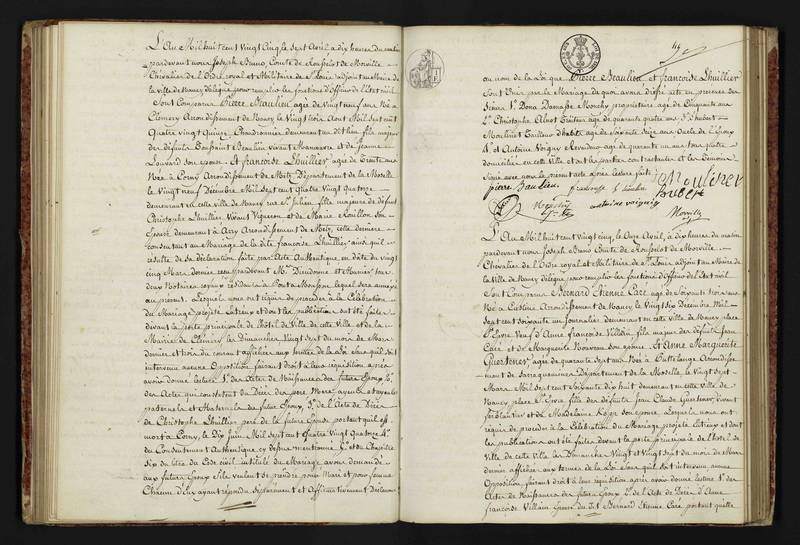 L'An Mil huit cent Vingt Cinq le Sept Avril à dix heures du matin
pardevant nous Joseph Bruno Comte de Rousselot de Morville
Chevalier de l'Ordre royal et Militaire de St Louis adjoint au Maire de
la Ville de Nancy délégué pour remplir les fonctions d'Officier de l'Etat civil
Sont Comparus Pierre Beaulieu agé de Vingt neuf ans Né à
Clémery Arrondissement de Nancy le Vingt trois Aout Mil Sept cent
Quatre vingt Quinze, Chardronnier, demeurant au dit lieu, fils majeur
des défunts Toussaint Beaulieu vivant Manœuvre et de Jeanne
Louvard son épouse. Et françoise Lhuillier agée de Trente ans
Née à Corny Arrondissement de Metz, Département de la Moselle
le Vingt neuf Décembre Mil Sept cent Quatre Vingt Quatorze
demeurant en cette ville de Nancy rue St Julien fille majeure de défunt
Christophe Lhuillier Vivant Vigneron et de Marie Rouillon son
Epouse demeurant à Arry Arrondissement de Metz, cette dernière
consentant au Mariage de la dite françoise Lhuillier ainsi qu'il
résulte de sa déclaration faite par Acte Authentique en date du vingt
cinq Mars dernier reçu pardevant Me Dieudonné et Munier
deux Notaires royaux résidans à Pont à Mousson lequel sera annexé
au présent. Lesquels nous ont requis de procéder à la Célébration
du Mariage projeté entr'eux et dont les publications ont été faites
devant la porte principale de l'hôtel de Ville de cette ville et de la
Mairie de Clémery les Dimanches Vingt Sept du mois de Mars
dernier et trois du courant affichées aux termes de la Loi sans qu'il soit
intervenu aucune Opposition faisant droit à leur réquisition après
avoir donné lecture 1° des Actes de Naissance des futurs Epoux 2°
des Actes qui constatent du Décès des père Mère ayeuls et ayeules
paternels et Maternels du futur Epoux 3° de l'Acte de Décès
de Christophe Lhuillier père de la future Epouse portant qu'il est
mort à Corny, le Dix Juin Mil Sept cent Quatre Vingt Quatorze 4°
du Consentement Authentique cy dessus mentionné 5° et du Chapitre
Six du titre du Code civil intitulé du Mariage avons demandé
aux futurs Epoux S'ils veulent se prendre pour Mari et pour femme
Chacun d'Eux ayant répondu Séparément et Affirmativement Déclarons
44
au nom de la Loi que Pierre Beaulieu et françoise Lhuillier
Sont Unis par le Mariage de quoi avons dressé acte en présence des
Sieurs 1° Dona Damasse Monchy propriétaire agé de Cinquante ans
2° Christophe Albert Traiteur agé de quarante quatre ans 3° hubert
Moulinet Tailleur d'habits agé de Soixante Seize ans Oncle de l'Epoux
4° et Antoine Voirgny Revendeur agé de quarante un ans tous quatre
domiciliés en cette Ville et ont les parties contractantes et les Témoins
Signé avec nous le présent acte après lecture faite
pierre Baulieu. françoise Lhuilier Moulinet
hubert
Monchy antoine voirgny
Morville
L'An Mil huit cent Vingt cinq, le Onze Avril, à dix heures du matin
pardevant nous Joseph Bruno Comte de Rousselot de Morville
Chevalier de l'Ordre royal et Militaire de St Louis adjoint au Maire de
la Ville de Nancy délégué pour remplir les fonctions d'Officier de l'Etat civil
Sont Comparus Bernard Etienne Caré agé de Soixante trois ans
Né à Custine Arrondissement de Nancy le Vingt six Décembre Mil
Sept cent soixante un Journalier demeurant en cette ville de Nancy place
St Epvre Veuf d'Anne françoise Villain, fils majeur des défunts Jean
Caré et de Marguerite Nouveau son épouse. Et Anne Marguerite
Guerstener agée de quarante Sept ans Née à Puttelange Arrondisse-
ment de Sarreguemines Département de la Moselle, le Vingt sept
Mars Mil Sept cent Soixante dix huit demeurant en cette ville de
Nancy place St Epvre fille des défunts Jean Claude Guerstener vivant
ferblantier et de Madelaine Kopp son épouse. Lesquels nous ont
requis de procéder à la Célébration du Mariage projeté entr'eux et dont
les publications ont été faites devant la porte principale de l'hôtel de
Ville de cette ville les Dimanches Vingt et Vingt sept du mois de Mars
dernier affichées aux termes de la Loi sans qu'il soit intervenu aucune
Opposition, faisant droit à leur requisition après avoir donné lecture 1° des
Actes de Naissances des futurs Epoux 2° de l'Acte de Décès d'Anne
françoise Villain Epouse du dit Bernard Etienne Caré portant quelle